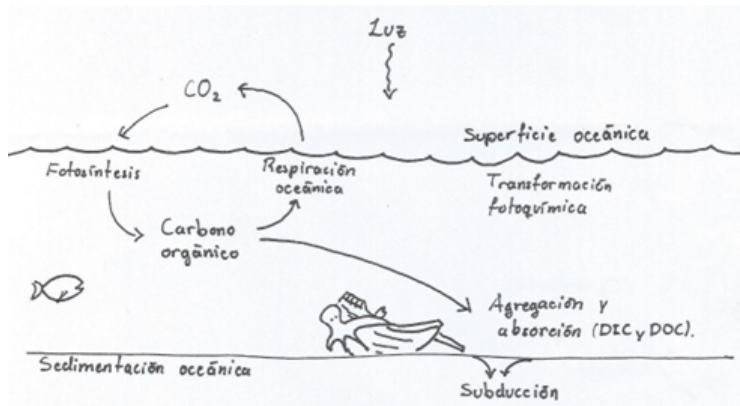 Luz
CO₂
Superficie oceánica
Fotosíntesis
Respiración
oceánica
Transformación
fotoquímica
Carbono
orgánico
Agregación y
absorción (DIC y DOC).
Sedimentación oceánica
Subducción